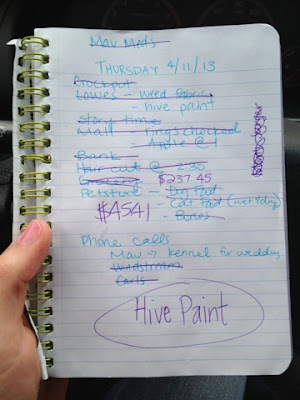 Mav Meds
THURSDAY 4/11/13
Crockpot
Lowes - weed fabric
- hive paint
Story time
Mall - rings checked
- Apple @ 1
Bank
Hair cut @ 2:30
Groceries $237.45
Petstuff - Dog Food
$4541 - Cat Food (wet & dry)
- Bones
Phone calls
Mav → kennel for wedding
Windstream
Carls
Hive Paint